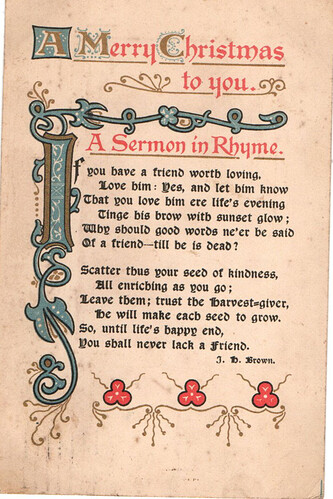 A Merry Christmas
to you.
A Sermon in Rhyme.
If you have a friend worth loving,
Love him: Yes, and let him know
That you love him ere life's evening
Tinge his brow with sunset glow;
Why should good words ne'er be said
Of a friend—till he is dead?
Scatter thus your seed of kindness,
All enriching as you go;
Leave them; trust the Harvest-giver,
He will make each seed to grow.
So, until life's happy end,
You shall never lack a Friend.
J. H. Brown.